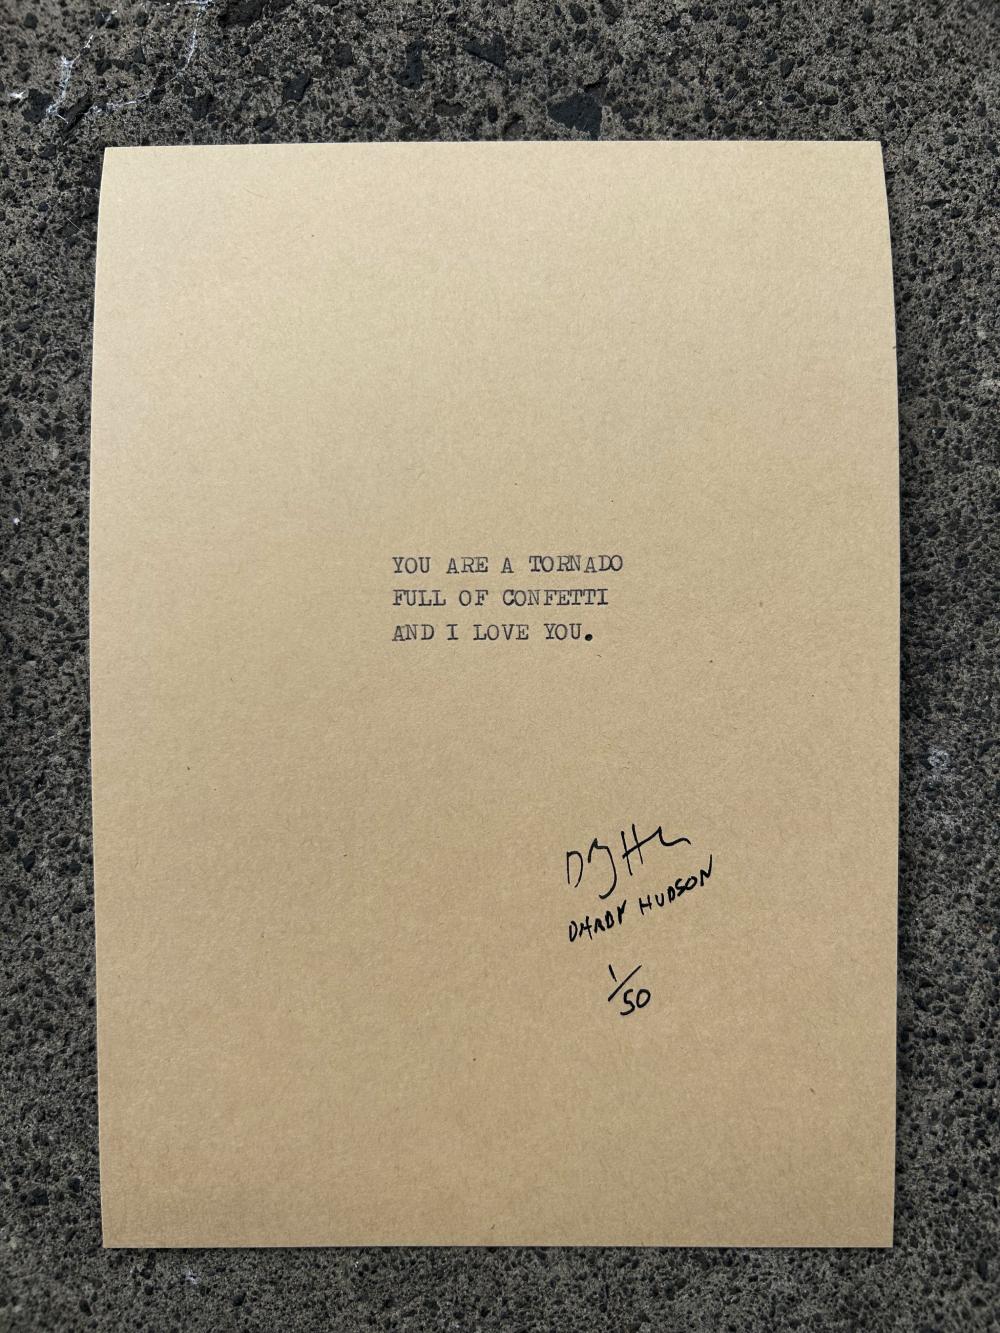 YOU ARE A TORNADO
FULL OF CONFETTI
AND I LOVE YOU.
DARBY HUDSON
1/50